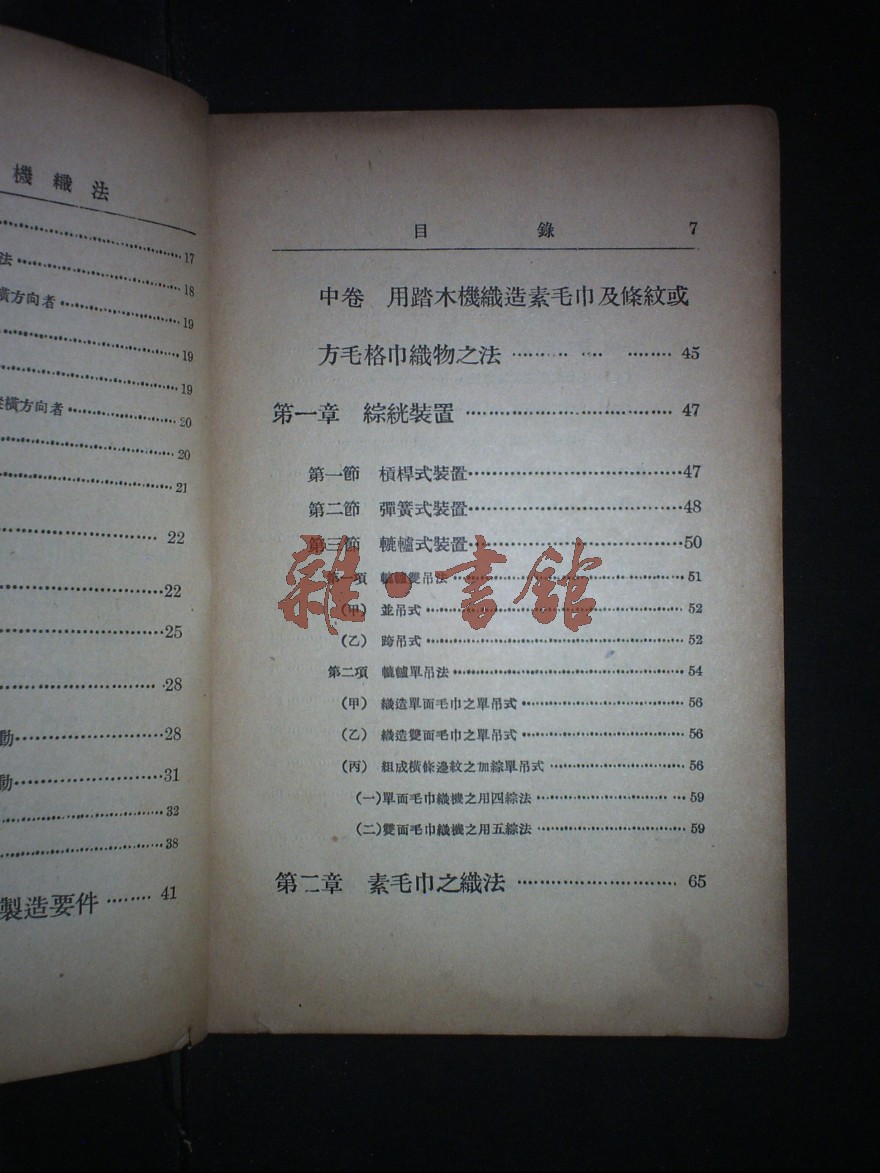 機織法
17
法 18
橫方向者 19
19
19
橫方向者 20
20
21
22
22
25
28
動 28
動 31
32
38
製造要件 41
目錄 7
中卷 用踏木機織造素毛巾及條紋或
方毛格巾織物之法 45
第一章 綜絖裝置 47
第一節 槓桿式裝置 47
第二節 彈簧式裝置 48
第三節 轆轤式裝置 50
第一項 轆轤雙吊法 51
(甲) 並吊式 52
(乙) 跨吊式 52
第二項 轆轤單吊法 54
(甲) 織造單面毛巾之單吊式 56
(乙) 織造雙面毛巾之單吊式 56
(丙) 組成橫條邊紋之加綜單吊式 56
(一)單面毛巾織機之用四綜法 59
(二)雙面毛巾織機之用五綜法 59
第二章 素毛巾之織法 65
雜·書館